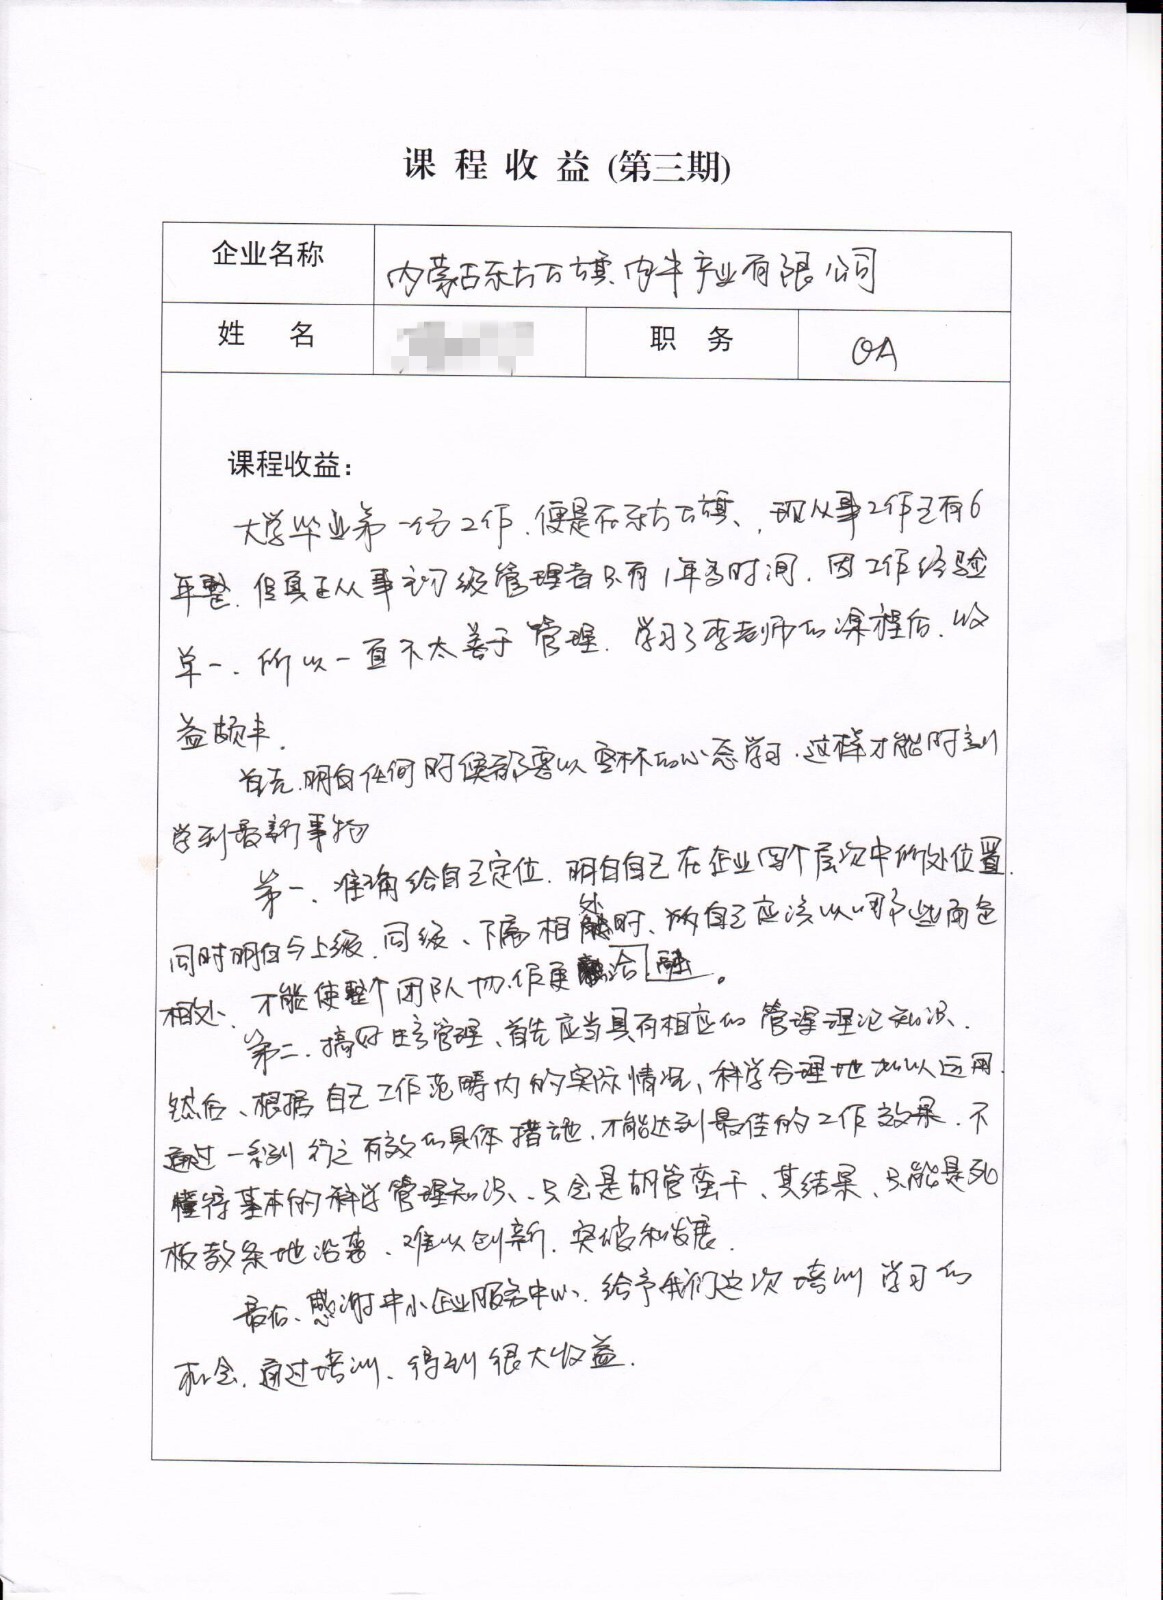 课程收益(第三期)
企业名称
内蒙古东方万旗肉牛产业有限公司
姓 名
职 务
OA
课程收益：
大学毕业第一份工作.便是在东方万旗、,现从事工作已有6
年整.但真正从事初级管理者只有1年多时间.因工作经验
单一.所以一直不太善于管理.学习了李老师的课程后.收
益颇丰.
首先.明白任何时候都要以空杯的心态学习.这样才能时刻
学到最新事物
第一、准确给自己定位.明白自己在企业四个层次中所处位置.
同时明白与上级.同级、下属相处时、自己应该以哪些角色
相处、才能使整个团队协作更洽融。
第二.搞好生产管理、首先应当具有相应的管理理论知识、
然后、根据自己工作范畴内的实际情况、科学合理地加以运用.
通过一系列行之有效的具体措施.才能达到最佳的工作效果.不
懂得基本的科学管理知识、只会是胡管蛮干、其结果、只能是死
板教条地沿袭、难以创新.突破和发展.
最后、感谢中小企业服务中心.给予我们这次培训学习的
机会.通过培训、得到很大收益.